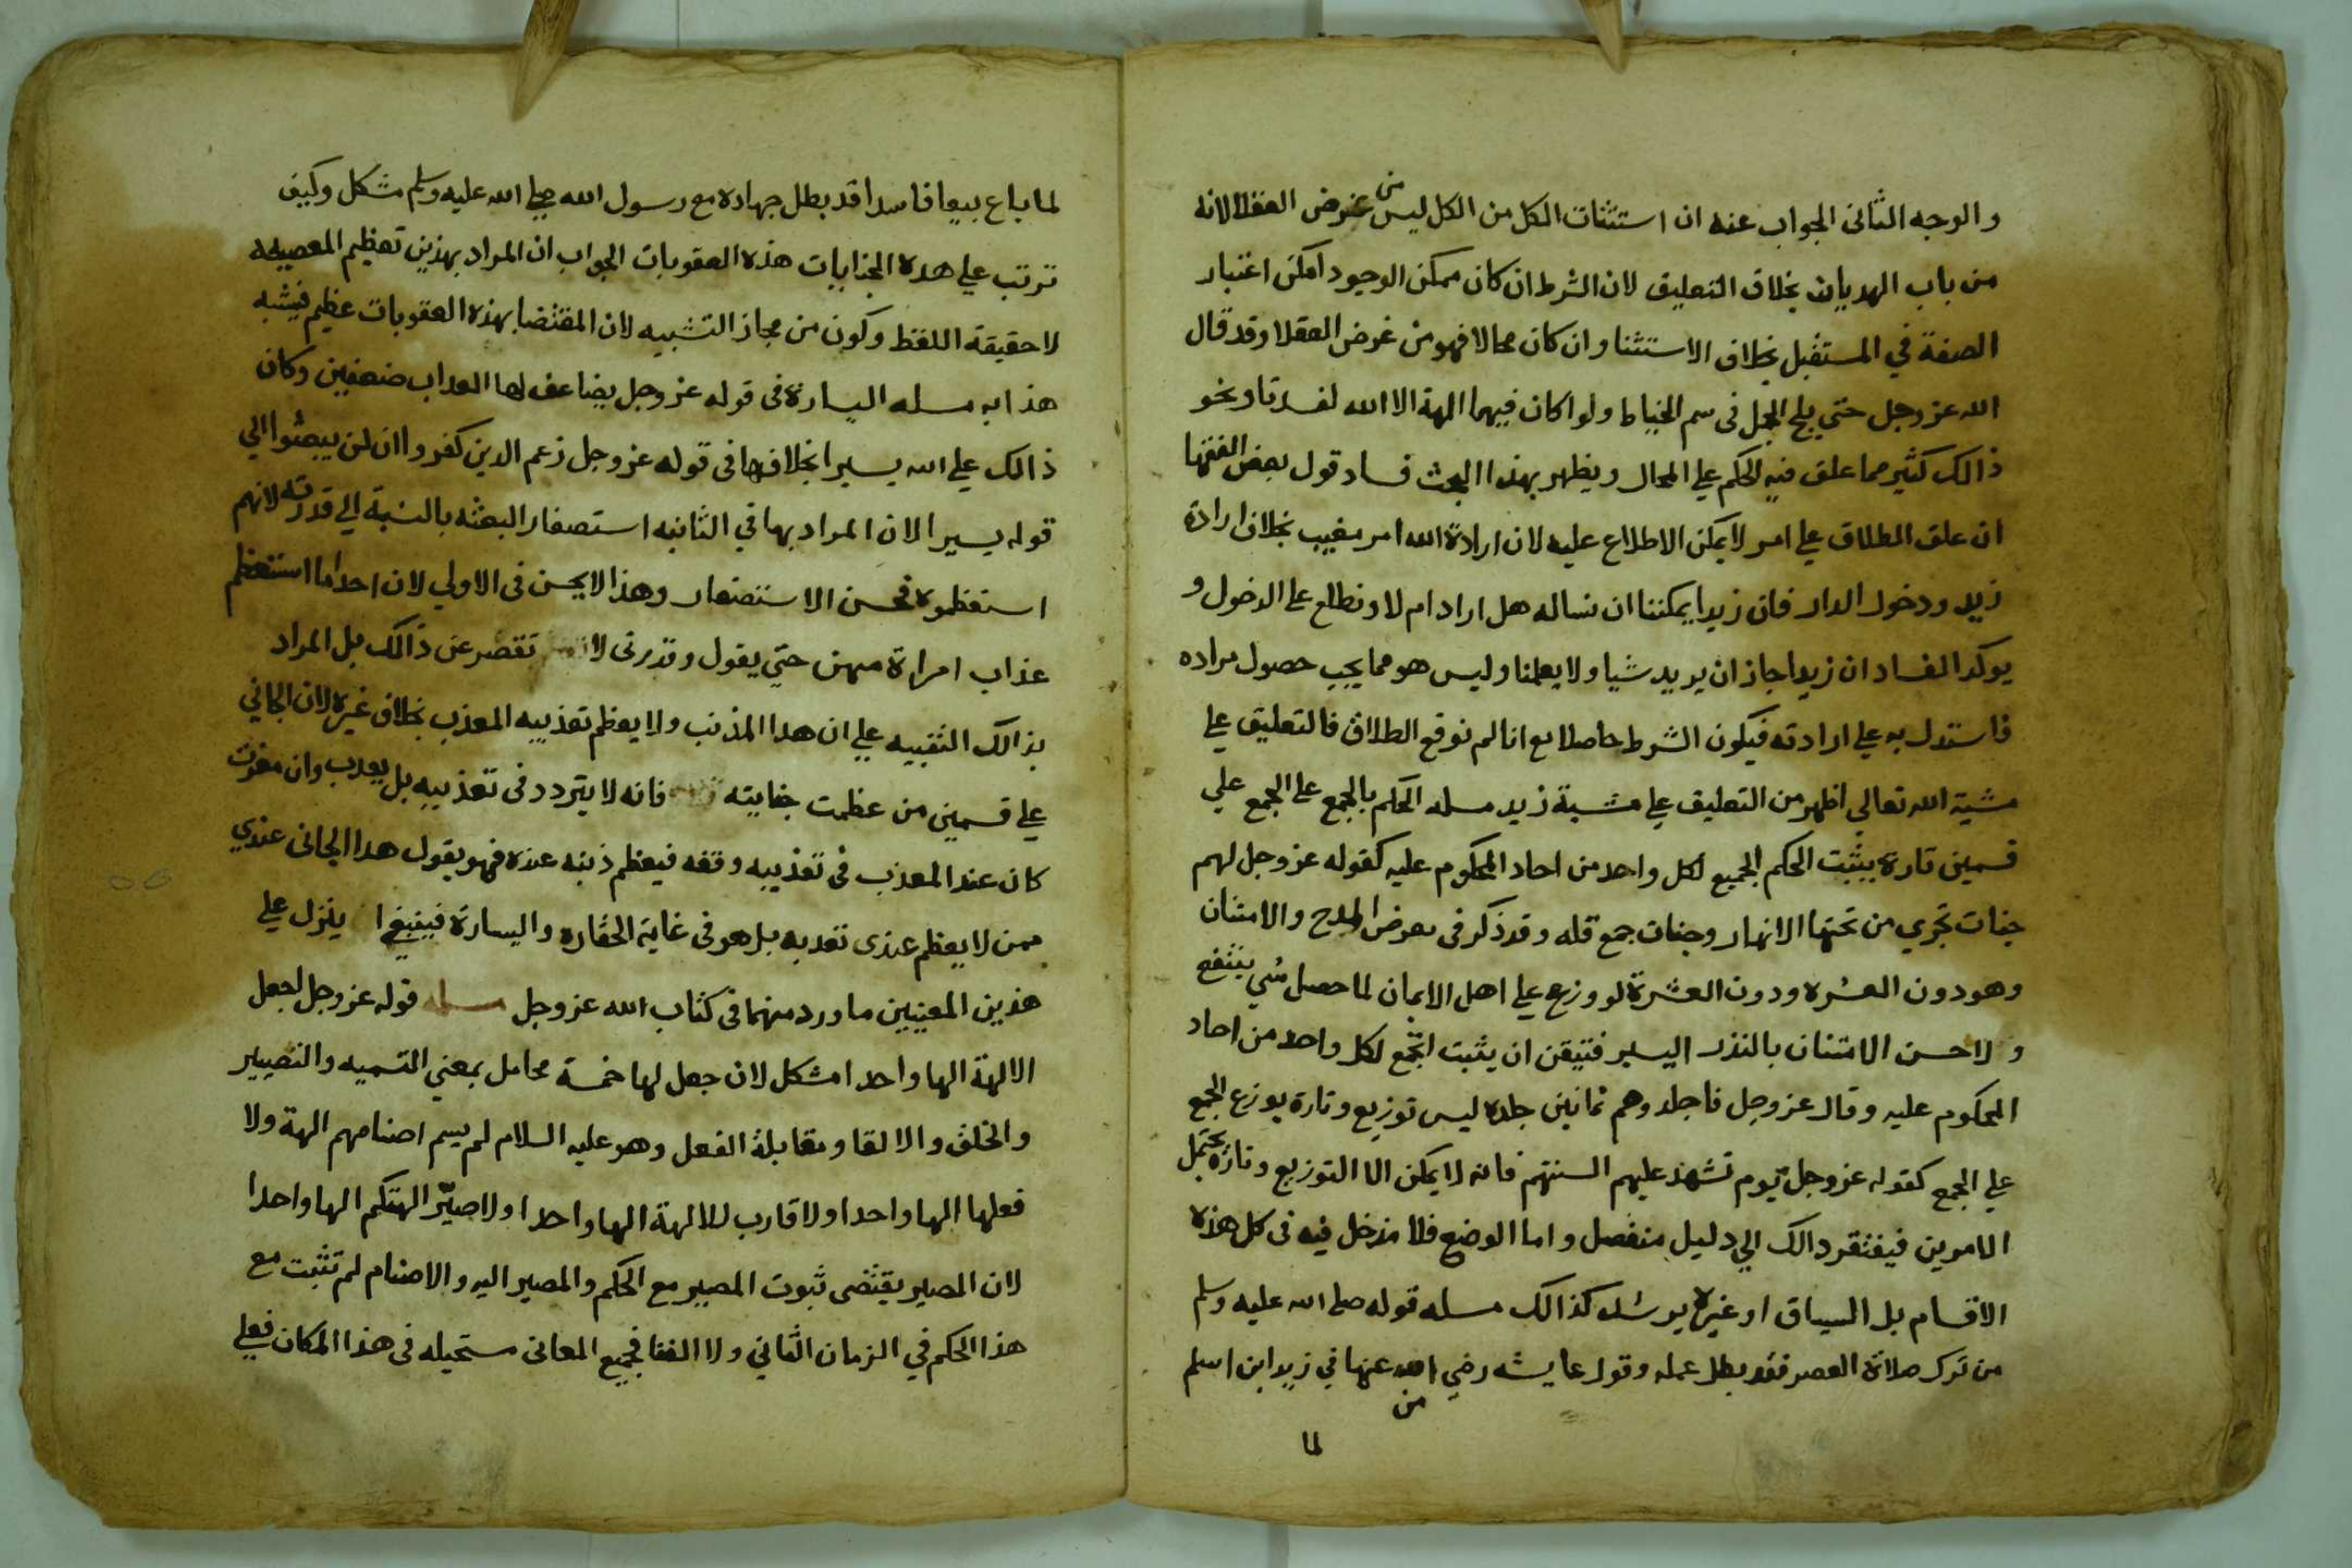 والوجه الثانى الجواب عنه ان استثنات الكل من الكل ليس من غرض العقلا لانه
من باب الهديان بخلاف التعليق لان الشرط ان كان ممكن الوجود امكن اعتبار
الصفة في المستقبل بخلاف الاستثنا وان كان محالا فهو من غرض العقلا وقد قال
الله عز وجل حتي يلج الجمل فى سم الخياط ولو كان فيهما الهة الا الله لفسدتا ونحو
ذالك كثير مما علق فيه الحكم علي المحال ويظهر بهذا البحث فساد قول بعض الفقها
ان علق الطلاق علي امر لا يمكن الاطلاع عليه لان ارادة الله امر مغيب بخلاف ارادة
زيد ودخول الدار فان زيدا يمكننا ان نساله هل اراد ام لا ونطلع على الدخول و
يوكد الفساد ان زيدا جاز ان يريد شيا ولا يعلمنا وليس هو مما يجب حصول مراده
فاستدل به علي ارادته فيكون الشرط حاصلا مع انا لم نوقع الطلاق فالتعليق علي
مشية الله تعالى اظهر من التعليق علي مشية زيد مسله الحكم بالجمع على الجمع علي
قسمين تارة يثبت الحكم الجميع لكل واحد من احاد المحكوم عليه كقوله عز وجل لهم
جنات تجري من تحتها الانهار وجنات جمع قله وقد ذكر فى معرض المدح والامتنان
وهو دون العشره ودون العشرة لو وزع علي اهل الايمان لما حصل شي ينتفع
ولا حسن الامتنان بالنذر اليسير فتيقن ان يثبت الجمع لكل واحد من احاد
المحكوم عليه وقال عز وجل فاجلدوهم ثمانين جلدة ليس توزيع وتارة يوزع الجمع
علي الجمع كقوله عز وجل يوم تشهد عليهم السنتهم فانه لا يمكن الا التوزيع وتارة يحتمل
الامرين فيفتقر دالك الي دليل منفصل واما الوضع فلا مدخل فيه فى كل هذه
الاقسام بل السياق او غيره يرشد كذالك مسله قوله صلى الله عليه وسلم
من ترك صلاة العصر فقد بطل عمله وقول عايشه رضي الله عنها في زيد ابن اسلم
من
لما
لما باع بيعا فاسدا قد بطل جهاده مع رسول الله صلي الله عليه وسلم مشكل وكيف
ترتب علي هده الجنايات هذه العقوبات الجواب ان المراد بهذين تعظيم المعصيه
لا حقيقة اللفظ وكون من مجاز التشبيه لان المقتضا بهذه العقوبات عظيم فيشبه
هذا به مسله اليسارة فى قوله عز وجل يضاعف لها العداب ضعفين وكان
ذالك علي الله يسيرا بخلافها فى قوله عز وجل زعم الدين كفروا ان لن يبعثوا الي
قوله يسير الان المراد بها في الثانيه استصغار البعثه بالنسبة الي قدرته لانهم
استعظموه فحسن الاستصغار وهذا لا يحسن فى الاولي لان احدا ما استعظم
عذاب امراة مهن حتي يقول وقدرتى لا تقصر عن ذالك بل المراد
بذالك التنبيه علي ان هدا المذنب ولا يعظم تعذيبه المعذب بخلاف غيره لان الجاني
علي قسمين من عظمت جنايته فانه لا يتردد فى تعذيبه بل يعدب وان
كان عند المعذب فى تعذيبه وقفه فيعظم ذنبه عنده فهو يقول هدا الجانى عندي
ممن لا يعظم عندى تعديبه بل هو فى غاية الحقارة واليسارة فينبغي ينزل علي
هذين المعنيين ما ورد منهما فى كتاب الله عز وجل مسله قوله عز وجل اجعل
الالهة الها واحدا مشكل لان جعل لها خمسة محامل بمعني التسميه والتصيير
والخلق والالقا ومقابلة الفعل وهو عليه السلام لم يسم اصنامهم الهة ولا
فعلها الها واحدا ولا قارب للالهة الها واحدا ولا صيّر الهتكم الها واحدا
لان المصير يقتضى ثبوت المصير مع الحكم والمصير اليه والاصنام لم تثبت مع
هذا الحكم في الزمان الثاني ولا الفنا فجميع المعانى مستحيله فى هذا المكان فعلي